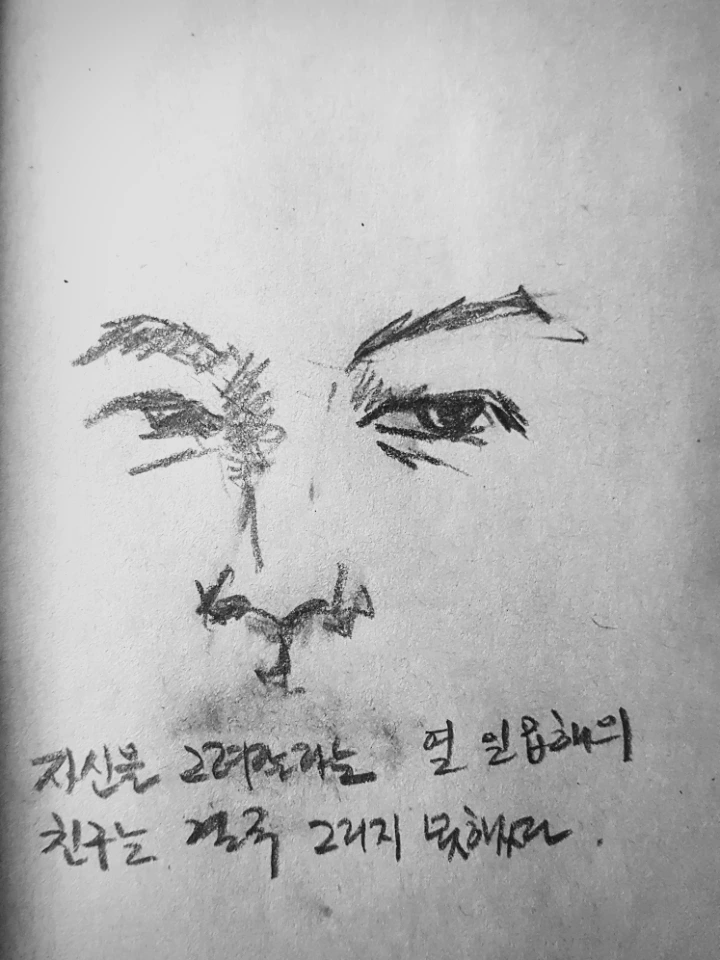 자신을 그려달라는 열 일곱해의
친구는 결국 그리지 못했다.